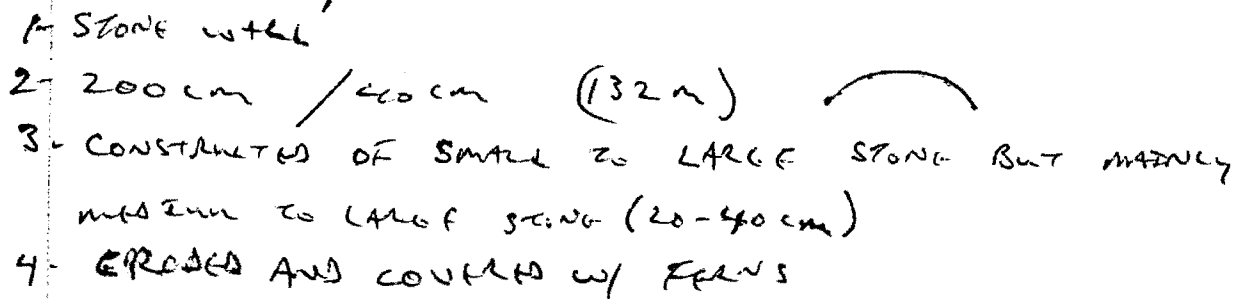 1- STONE WALL
2- 200 cm / 40 cm (132 m)
3- CONSTRUCTED OF SMALL TO LARGE STONE BUT MAINLY
MEDIUM TO LARGE STONE (20-40 cm)
4- ERODED AND COVERED W/ FERNS